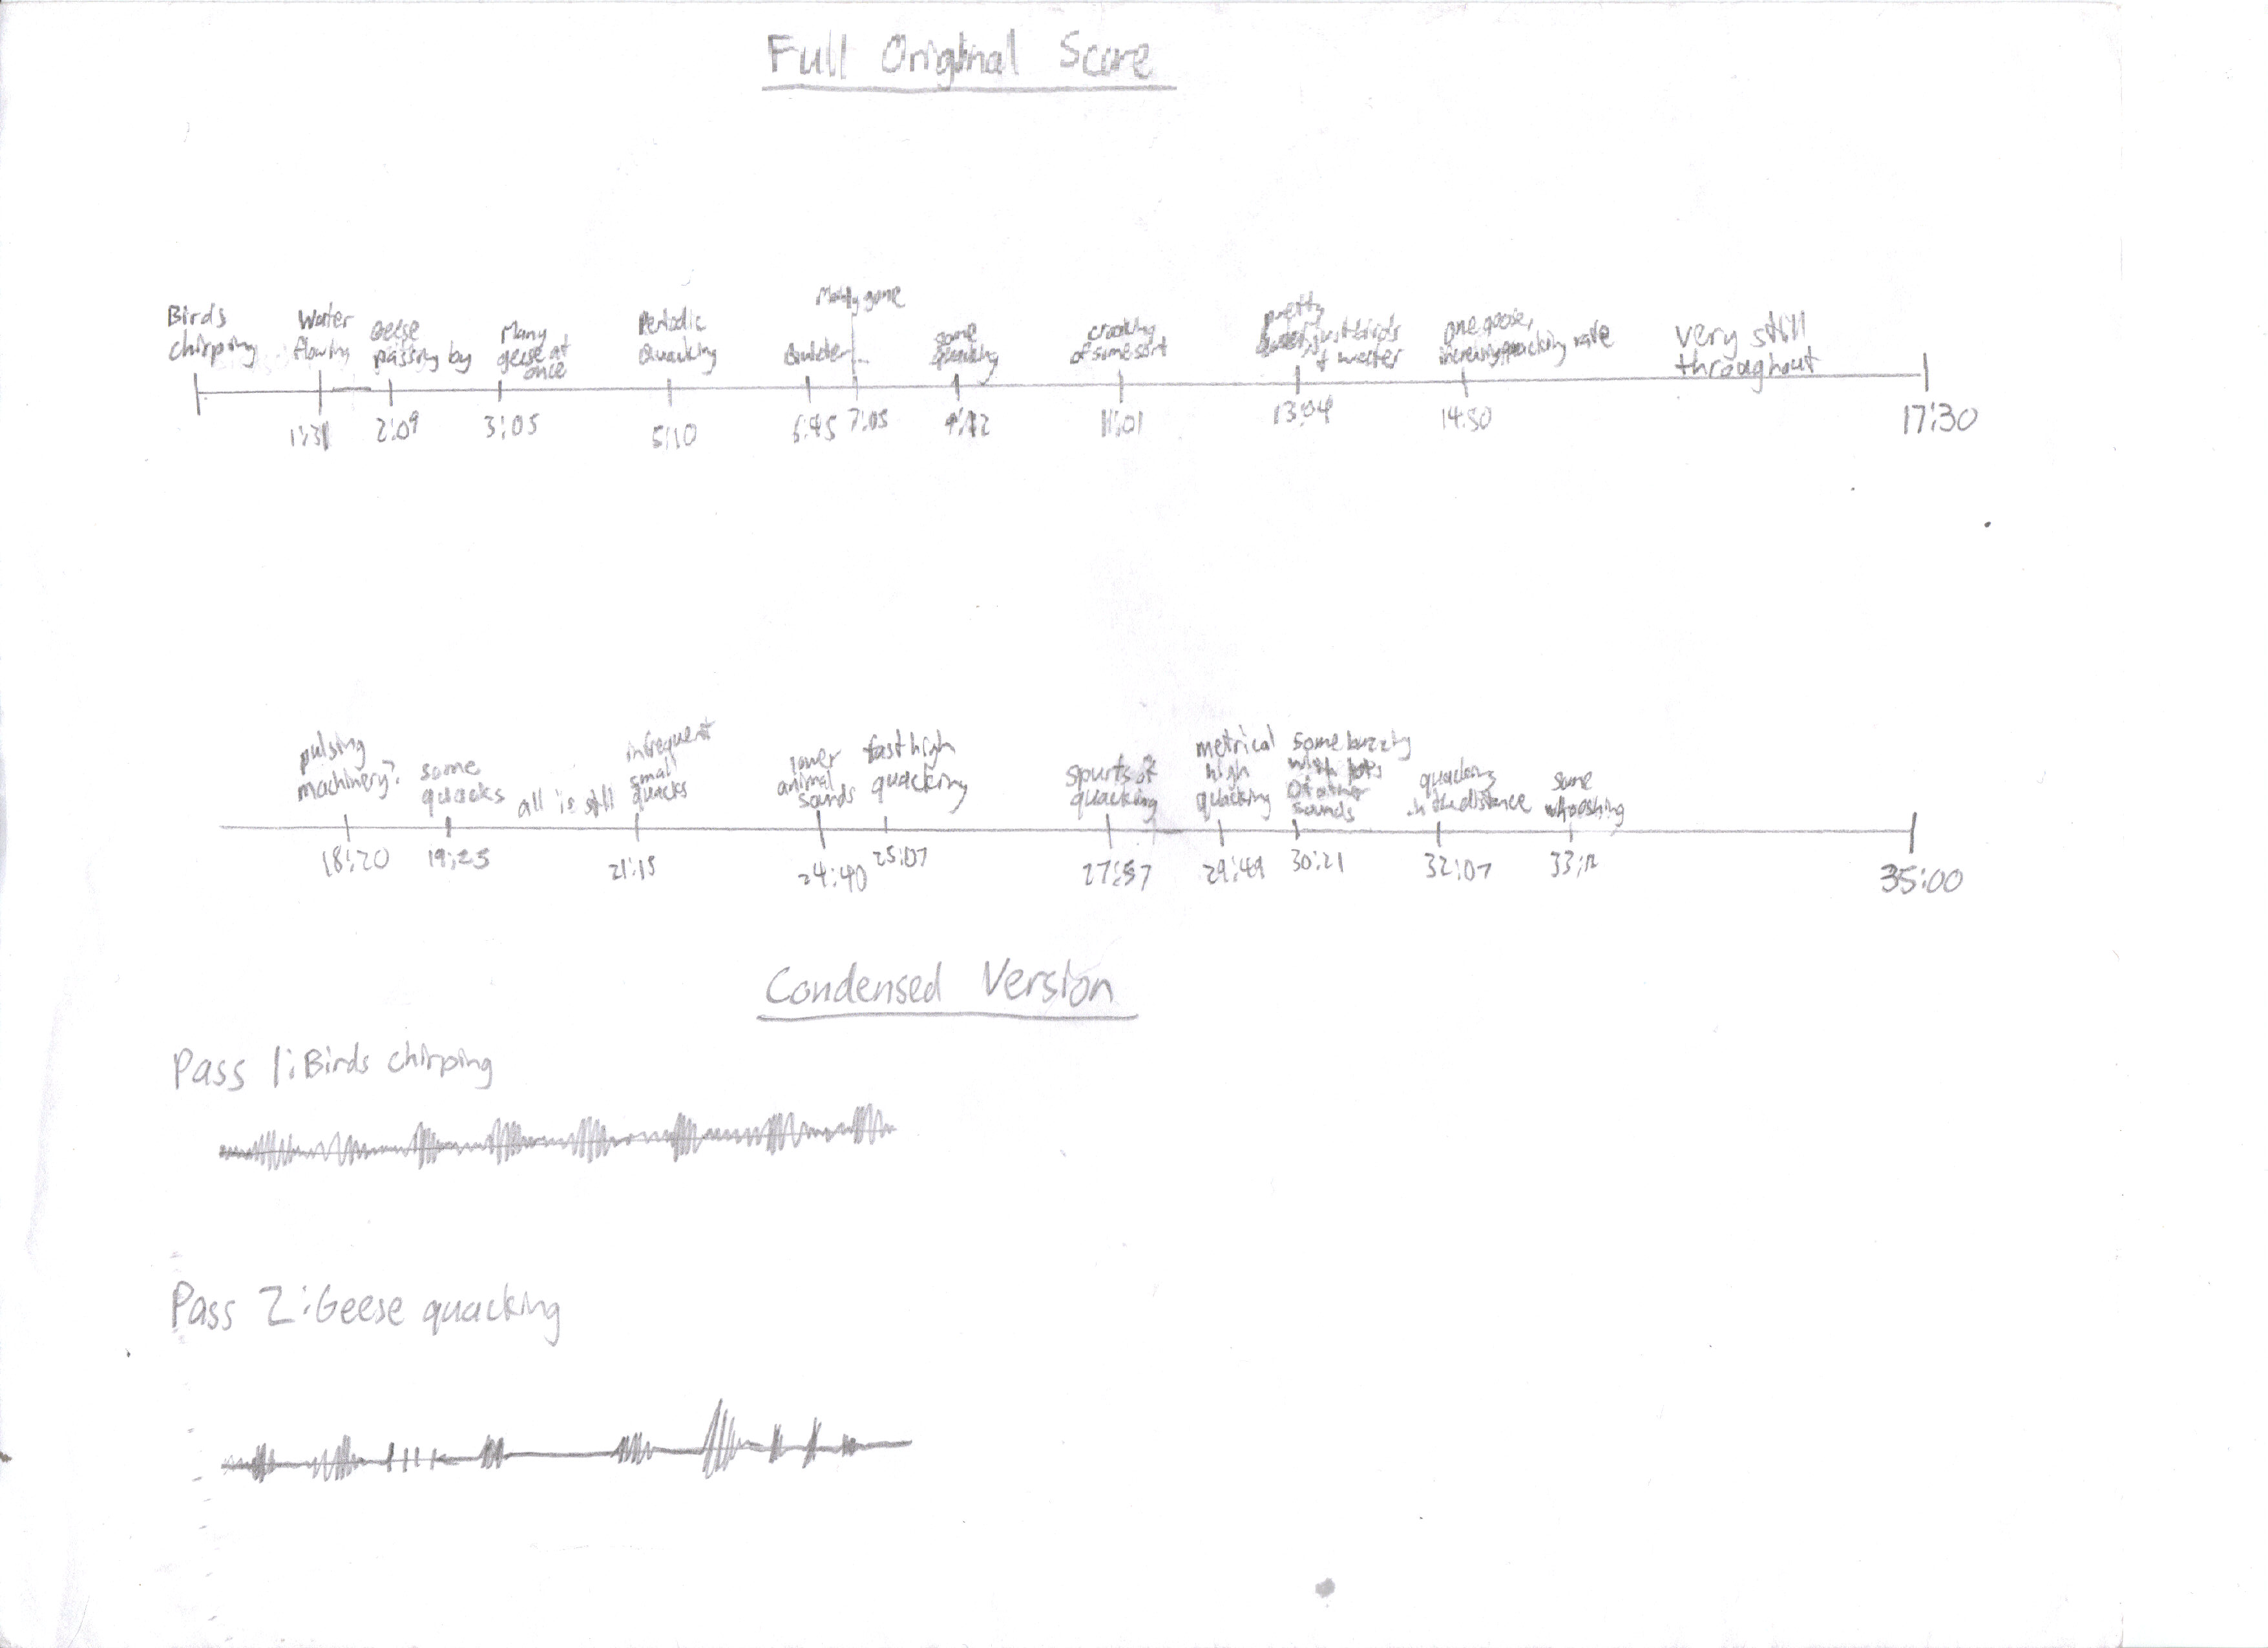 Full Original Score
Birds
chirping
Water
flowing
Geese
passing by
Many
geese at
once
Periodic
Quacking
Quieter...
Mostly gone
some
quacking
croaking
of some sort
pretty
quiet, just birds
+ water
one goose,
increasing quacking rate
very still
throughout
1:31
2:09
3:05
5:10
6:45
7:05
9:42
11:01
13:04
14:50
17:30
pulsing
machinery?
some
quacks
all is still
infrequent
small
quacks
lower
animal
sounds
fast high
quacking
spurts of
quacking
metrical
high
quacking
Some buzzing
with lots
Of other
sounds
quacking
in the distance
some
whooshing
18:20
19:25
21:15
24:40
25:07
27:57
29:49
30:21
32:07
33:12
35:00
Condensed Version
Pass 1: Birds chirping
Pass 2: Geese quacking